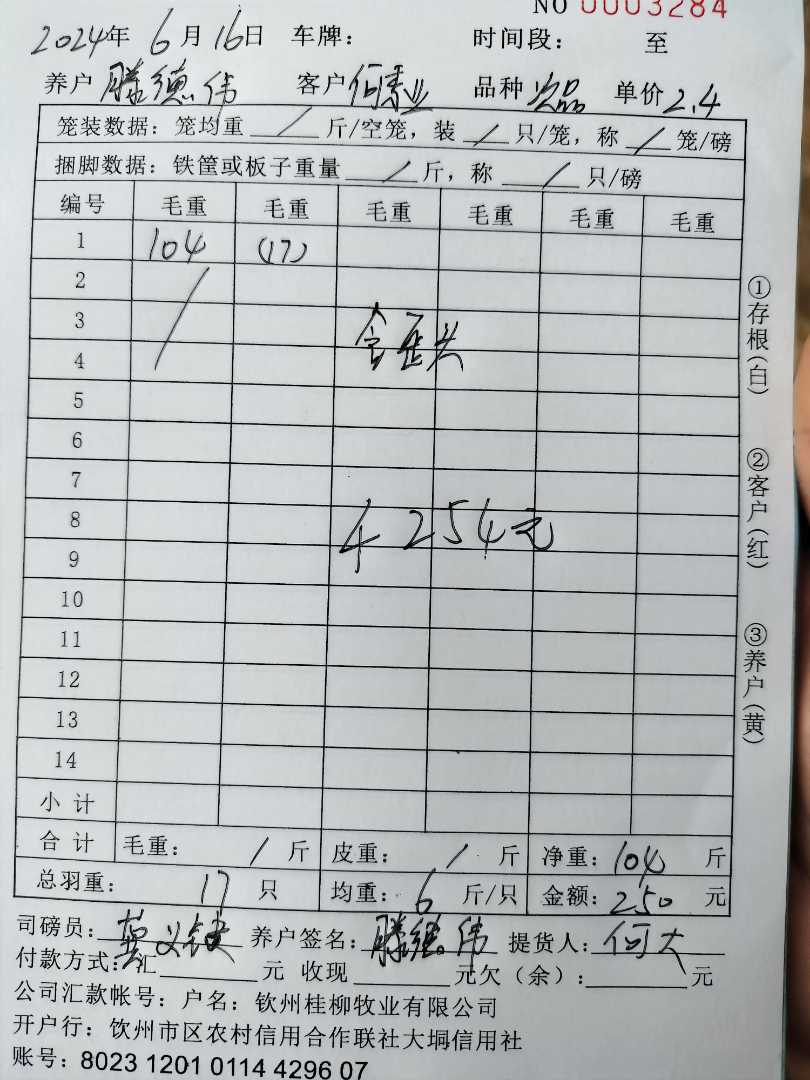 NO 0003284
2024年 6月16日 车牌： 时间段： 至
养户 滕德伟 客户 何秀业 品种 次品 单价 2.4
笼装数据：笼均重 / 斤/空笼，装 / 只/笼，称 / 笼/磅
捆脚数据：铁筐或板子重量 / 斤，称 / 只/磅
编号 毛重 毛重 毛重 毛重 毛重 毛重
1 104 (17)
2
3
含歪头
4
5
6
7
8
4254元
9
10
11
12
13
14
小计
合计 毛重： / 斤 皮重： / 斤 净重：104 斤
总羽重： 17 只 均重：6 斤/只 金额：250 元
司磅员： 养户签名：滕德伟 提货人：何大
付款方式：汇 元 收现 元欠（余）： 元
公司汇款帐号：户名：钦州桂柳牧业有限公司
开户行：钦州市区农村信用合作联社大垌信用社
账号：8023 1201 0114 4296 07
①存根（白）
②客户（红）
③养户（黄）